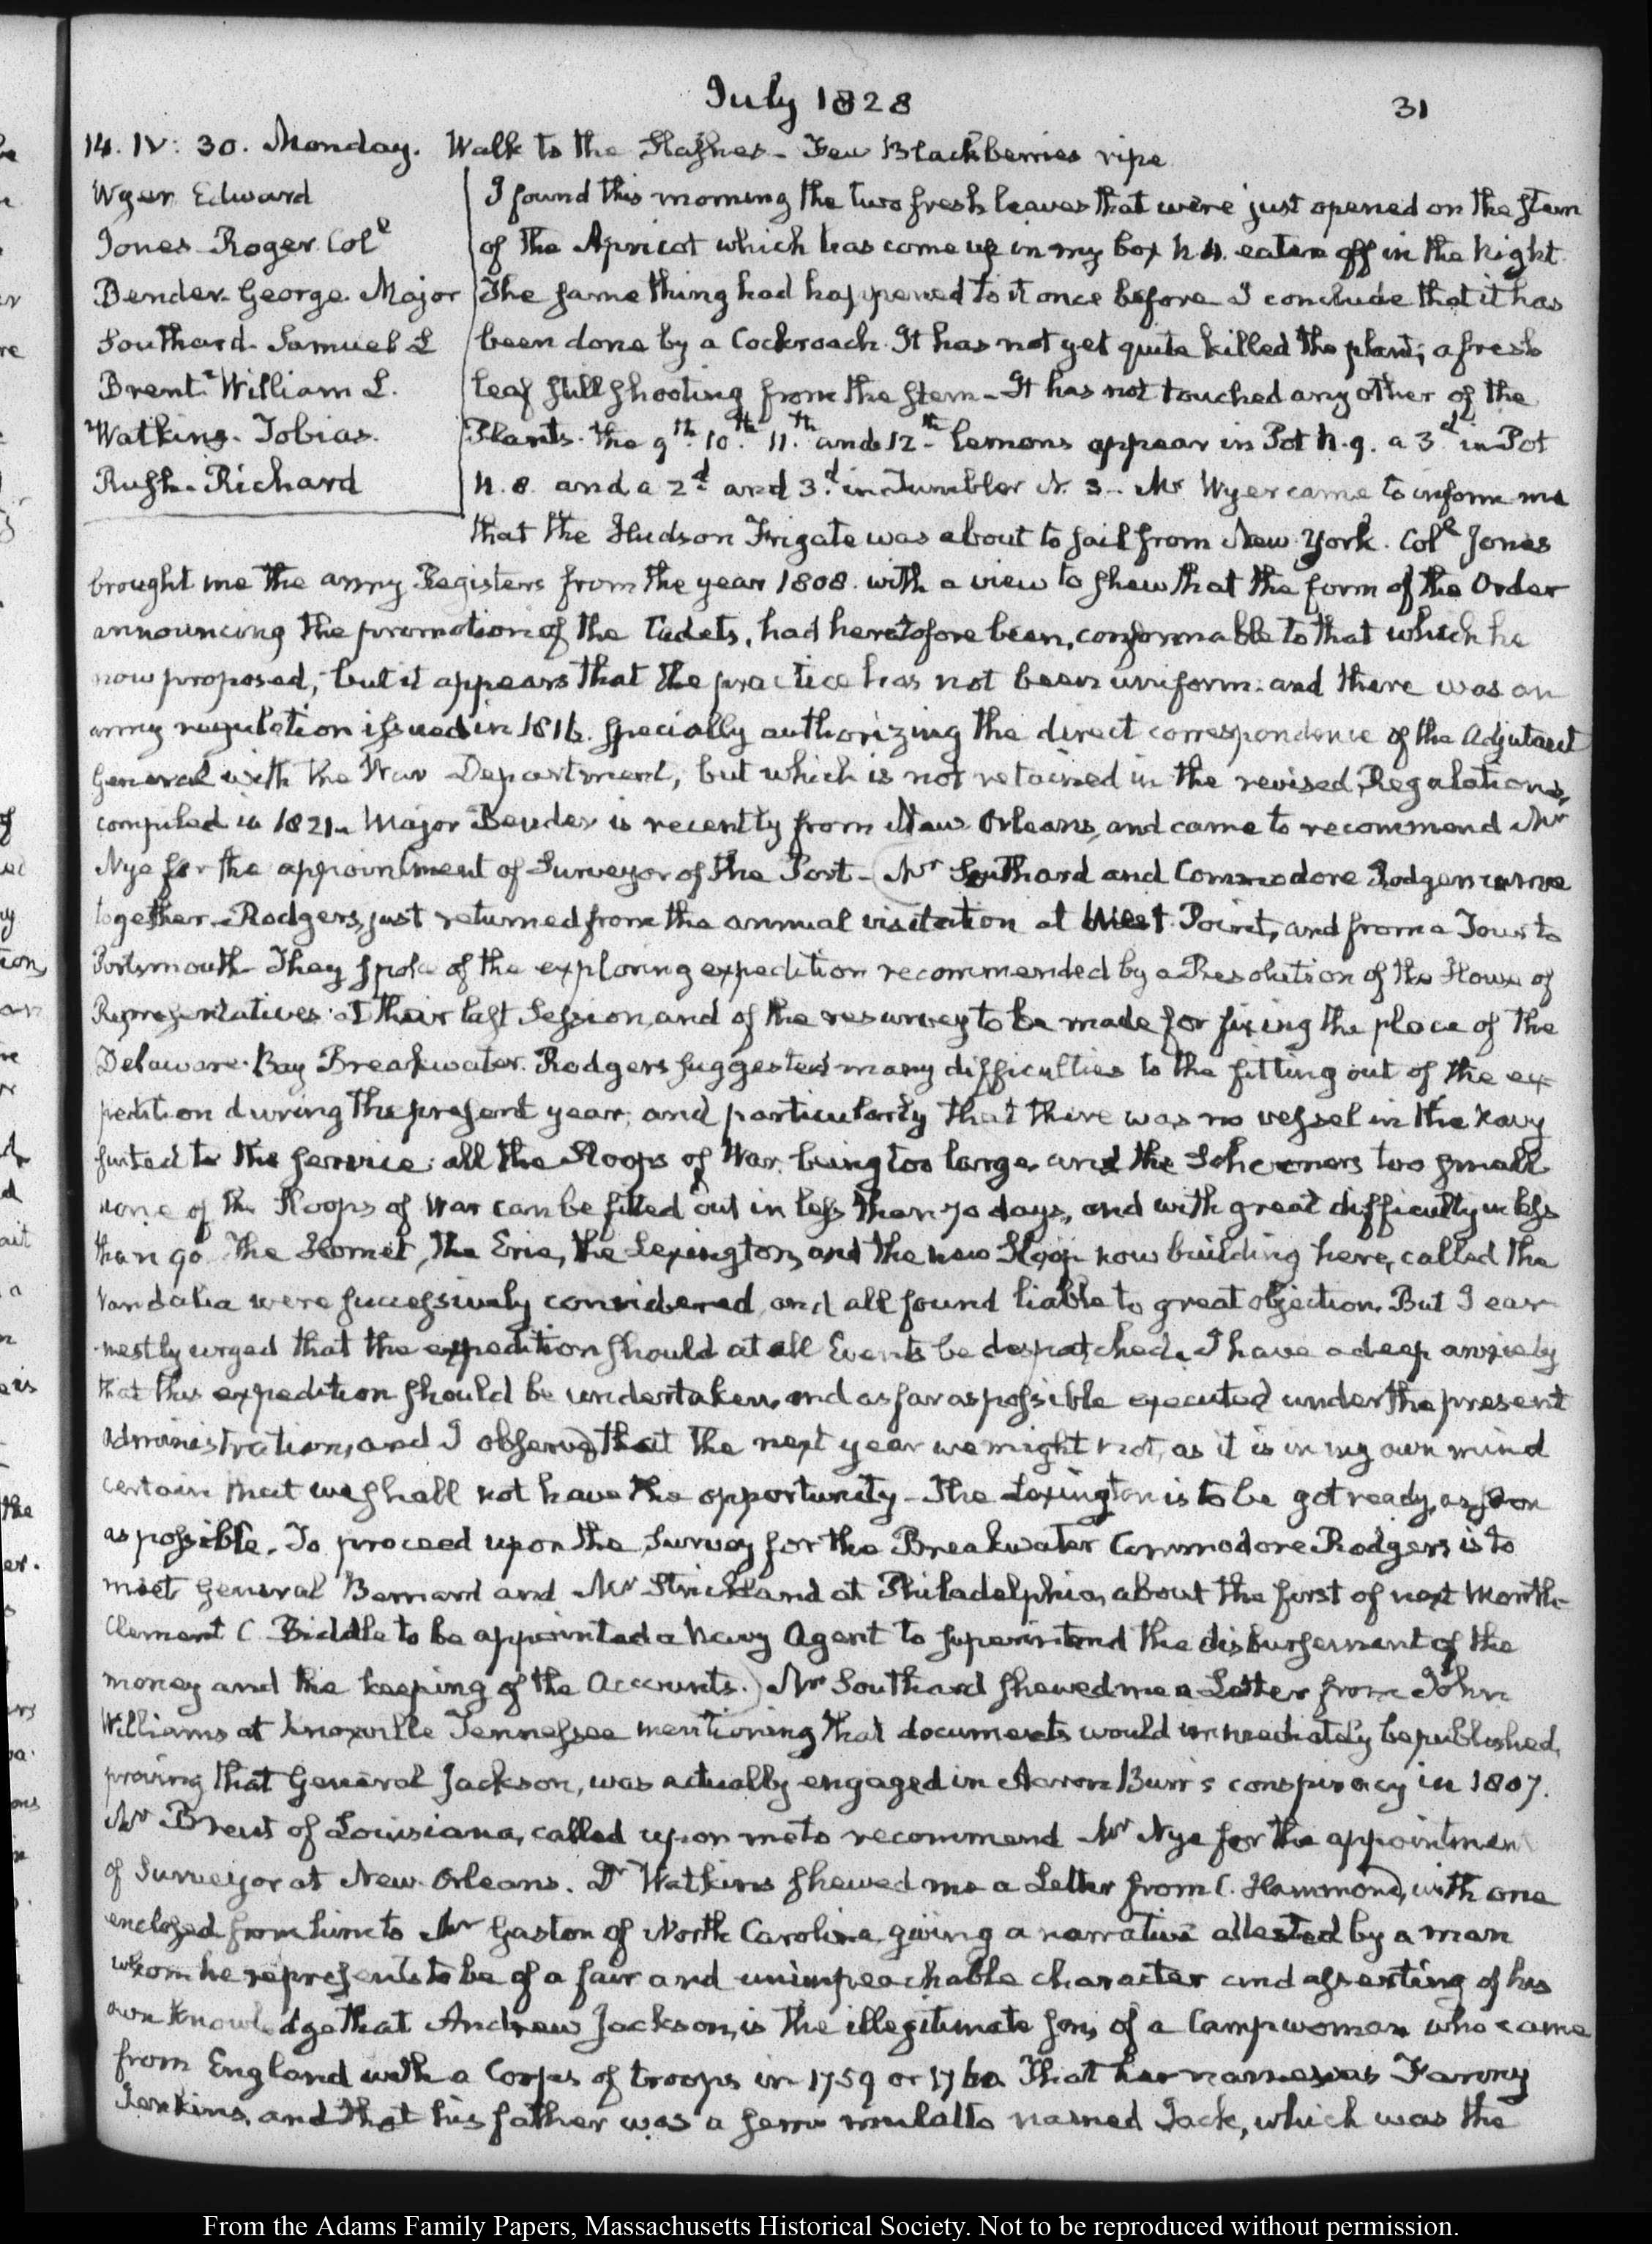 July 1828
31
14. IV: 30. Monday. Walk to the Slashes - Few Blackberries ripe
Wyer Edward
Jones Roger Col.l
Bender George Major
Southard Samuel L
Brent William L.
Watkins Tobias.
Rush Richard
I found this morning the two fresh leaves that were just opened on the stem
of the Apricot which has come up in my box N 4. eaten off in the Night.
The same thing had happened to it once before I conclude that it has
been done by a Cockroach. It has not yet quite killed the plant; a fresh
leaf still shooting from the stem - It has not touched any other of the
Plants. The 9th. 10th. 11th. and 12th. Lemons appear in Pot N. 9. a 3d. in Pot
N. 8. and a 2d. and 3d. in Tumbler N. 3 - Mr Wyer came to inform me
that the Hudson Frigate was about to sail from New York. Coll Jones
brought me the army Registers from the year 1808. with a view to shew that the form of the Order
announcing the promotion of the Cadets, had heretofore been, conformable to that which he
now proposed; but it appears that the practice has not been uniform: and there was an
army regulation issued in 1816. specially authorizing the direct correspondence of the Adjutant
General with the War Department, but which is not retained in the revised Regulations,
compiled in 1821. Major Bender is recently from New Orleans, and came to recommend Mr
Nye for the appointment of Surveyor of the Port - (Mr Southard and Commodore Rodgers came
together - Rodgers, just returned from the annual visitation at West Point, and from a Tour to
Portsmouth - They spoke of the exploring expedition recommended by a Resolution of the House of
Representatives at their last Session, and of the resurvey to be made for fixing the place of the
Delaware Bay Breakwater. Rodgers suggested many difficulties to the fitting out of the ex-
pedition during the present year; and particularly that there was no vessel in the Navy
suited to the service; all the Sloops of War, being too large, and the Schooners too small
none of the Sloops of War can be fitted out in less than 70 days, and with great difficulty in less
than 90. The Hornet, the Erie, the Lexington, and the new Sloop now building here, called the
Vandalia were successively considered, and all found liable to great objection. But I ear-
nestly urged that the expedition should at all Events be despatched. I have a deep anxiety
that this expedition should be undertaken, and as far as possible executed under the present
Administration, and I observed that the next year we might not, as it is in my own mind
certain that we shall not have the opportunity - The Lexington is to be got ready, as soon
as possible. To proceed upon the Survey for the Breakwater Commodore Rodgers is to
meet General Bernard and Mr Strickland at Philadelphia, about the first of next Month -
Clement C. Biddle to be appointed a Navy Agent to superintend the disbursement of the
money and the keeping of the Accounts.) Mr Southard shewed me a Letter from John
Williams at Knoxville Tennessee mentioning that documents would immediately be published,
proving that General Jackson, was actually engaged in Aaron Burr's conspiracy in 1807.
Mr Brent of Louisiana, called upon me to recommend Mr Nye for the appointment
of Surveyor at New Orleans. Dr Watkins shewed me a Letter from C. Hammond, with one
enclosed from him to Mr Gaston of North Carolina, giving a narrative attested by a man
whom he represents to be of a fair and unimpeachable character and asserting of his
own knowledge that Andrew Jackson, is the illegitimate son, of a Camp woman who came
from England with a Corps of troops in 1759 or 1760. That her name was Fanny
Jenkins, and that his father was a semi mulatto named Jack, which was the
From the Adams Family Papers, Massachusetts Historical Society. Not to be reproduced without permission.